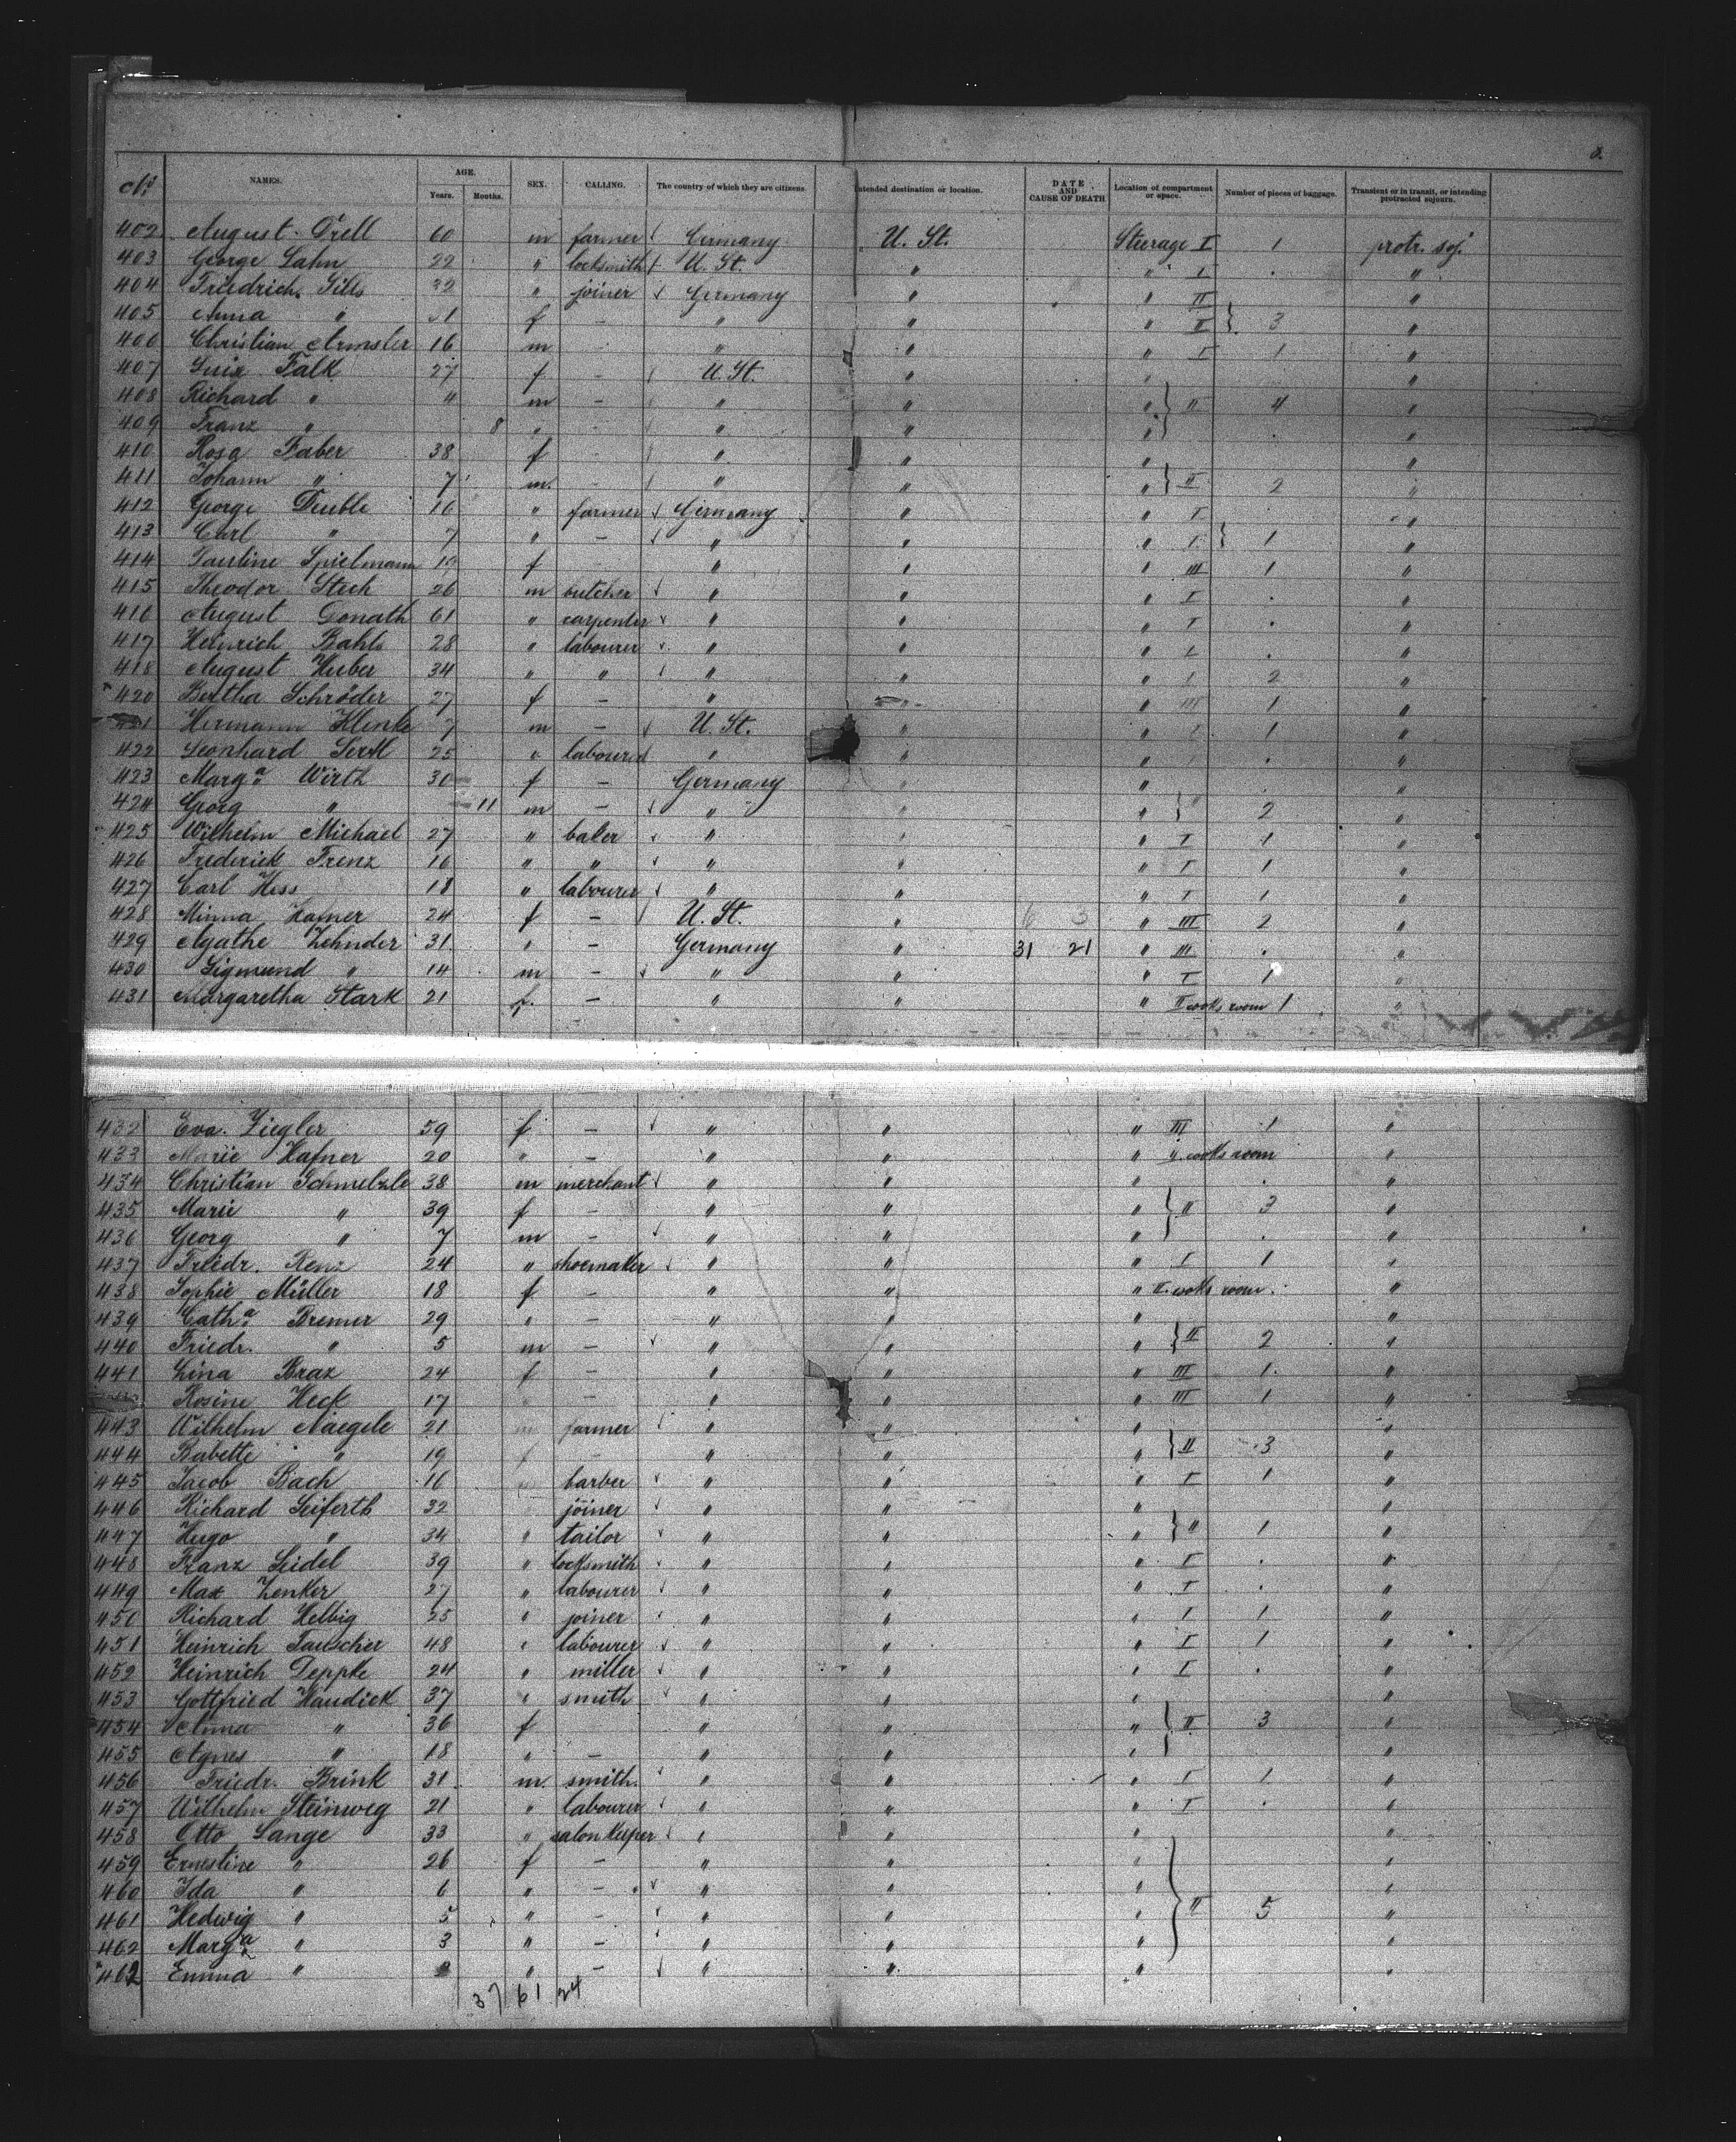 8.
No. NAMES. AGE. Years. Months. SEX. CALLING. The country of which they are citizens. Intended destination or location. DATE AND CAUSE OF DEATH Location of compartment or space. Number of pieces of baggage. Transient or in transit, or intending protracted sojourn.
402 August Trell 60 m farmer Germany U. St. Steerage I 1 protr. soj.
403 George Lahn 22 " locksmith U. St. " " I . "
404 Friedrich 32 " joiner Germany " " II "
405 Anna " f - " " " I 3 "
406 Christian Armsler 16 m " " " I 1 "
407 Luix Falk 27 f - U. St. " " "
408 Richard " 4 m - " " " II 4 "
409 Franz " 8 " - " " " "
410 Rosa Faber 38 f - " " " "
411 Johann " 7 m - " " " II 2 "
412 George Deuble 16 " farmer Germany " " I . "
413 Carl " 7 " - " " " I 1 "
414 Pauline Spielmann 19 f " " " III 1 "
415 Theodor Stech 26 m butcher " " " I . "
416 August Gonath 61 " carpenter " " " I . "
417 Heinrich Bahls 28 " labourer " " " I . "
418 August Huber 34 " " " " " I 2 "
420 Bertha Schröder 27 f - " " " III 1 "
421 Hermann Klenke 7 m - U. St. " " I 1 "
422 Leonhard 25 " labourer " " " . "
423 Marg.a Wirth 30 f - Germany " " . "
424 Georg " 11 m - " " " " 2 "
425 Wilhelm Michael 27 " baker " " " I 1 "
426 Frederick Frenz 16 " " " " " I 1 "
427 Carl Hess 18 " labourer " " " I 1 "
428 Minna Hafner 24 f - U. St. " 6 3 " III 2 "
429 Agathe Zehnder 31 " - Germany " 31 21 " III . "
430 Sigmund " 14 m - " " " I 1 "
431 Margaretha Stark 21 f - " " " II cooks room 1 "
432 Eva Ziegler 59 f - " " " III 1 "
433 Marie Hafner 20 " - " " " II cooks room "
434 Christian Schmelzle 38 m merchant " " " . "
435 Marie " 39 f - " " " II 3 "
436 Georg " 7 m - " " " . "
437 Friedr. Renz 24 " shoemaker " " " I 1 "
438 Sophie Müller 18 f - " " " II cooks room . "
439 Cath.a Bremer 29 " - " " " "
440 Friedr. " 5 m - " " " II 2 "
441 Lina Braz 24 f - " " " III 1 "
Rosine Heck 17 - " " " III 1 "
443 Wilhelm Naegele 21 m farmer " " " "
444 Babette " 19 f - " " " II 3 "
445 Jacob Bach 16 barber " " " I 1 "
446 Richard Seiferth 32 joiner " " " "
447 Hugo " 34 " tailor " " " " 1 "
448 Franz Seidel 39 " locksmith " " " I . "
449 Max Zenker 27 " labourer " " " I . "
450 Richard Helbig 35 " joiner " " " I 1 "
451 Heinrich Tauscher 48 " labourer " " " I 1 "
452 Heinrich Deppke 24 " miller " " " I . "
453 Gottfried Haudick 37 " smith " " " "
454 Anna " 36 f " " " II 3 "
455 Agnes " 18 " - " " " "
456 Friedr. Brink 31 m smith " " " I 1 "
457 Wilhelm Steinweg 21 " labourer " " " I . "
458 Otto Lange 33 " salon Keeper " " "
459 Ernestine " 26 f - " " " "
460 Ida " 6 " - " " " "
461 Hedwig " 5 " - " " " II 5 "
462 Marg.a " 3 " - " " " "
462 Emma " " - " " " "
37 61 24